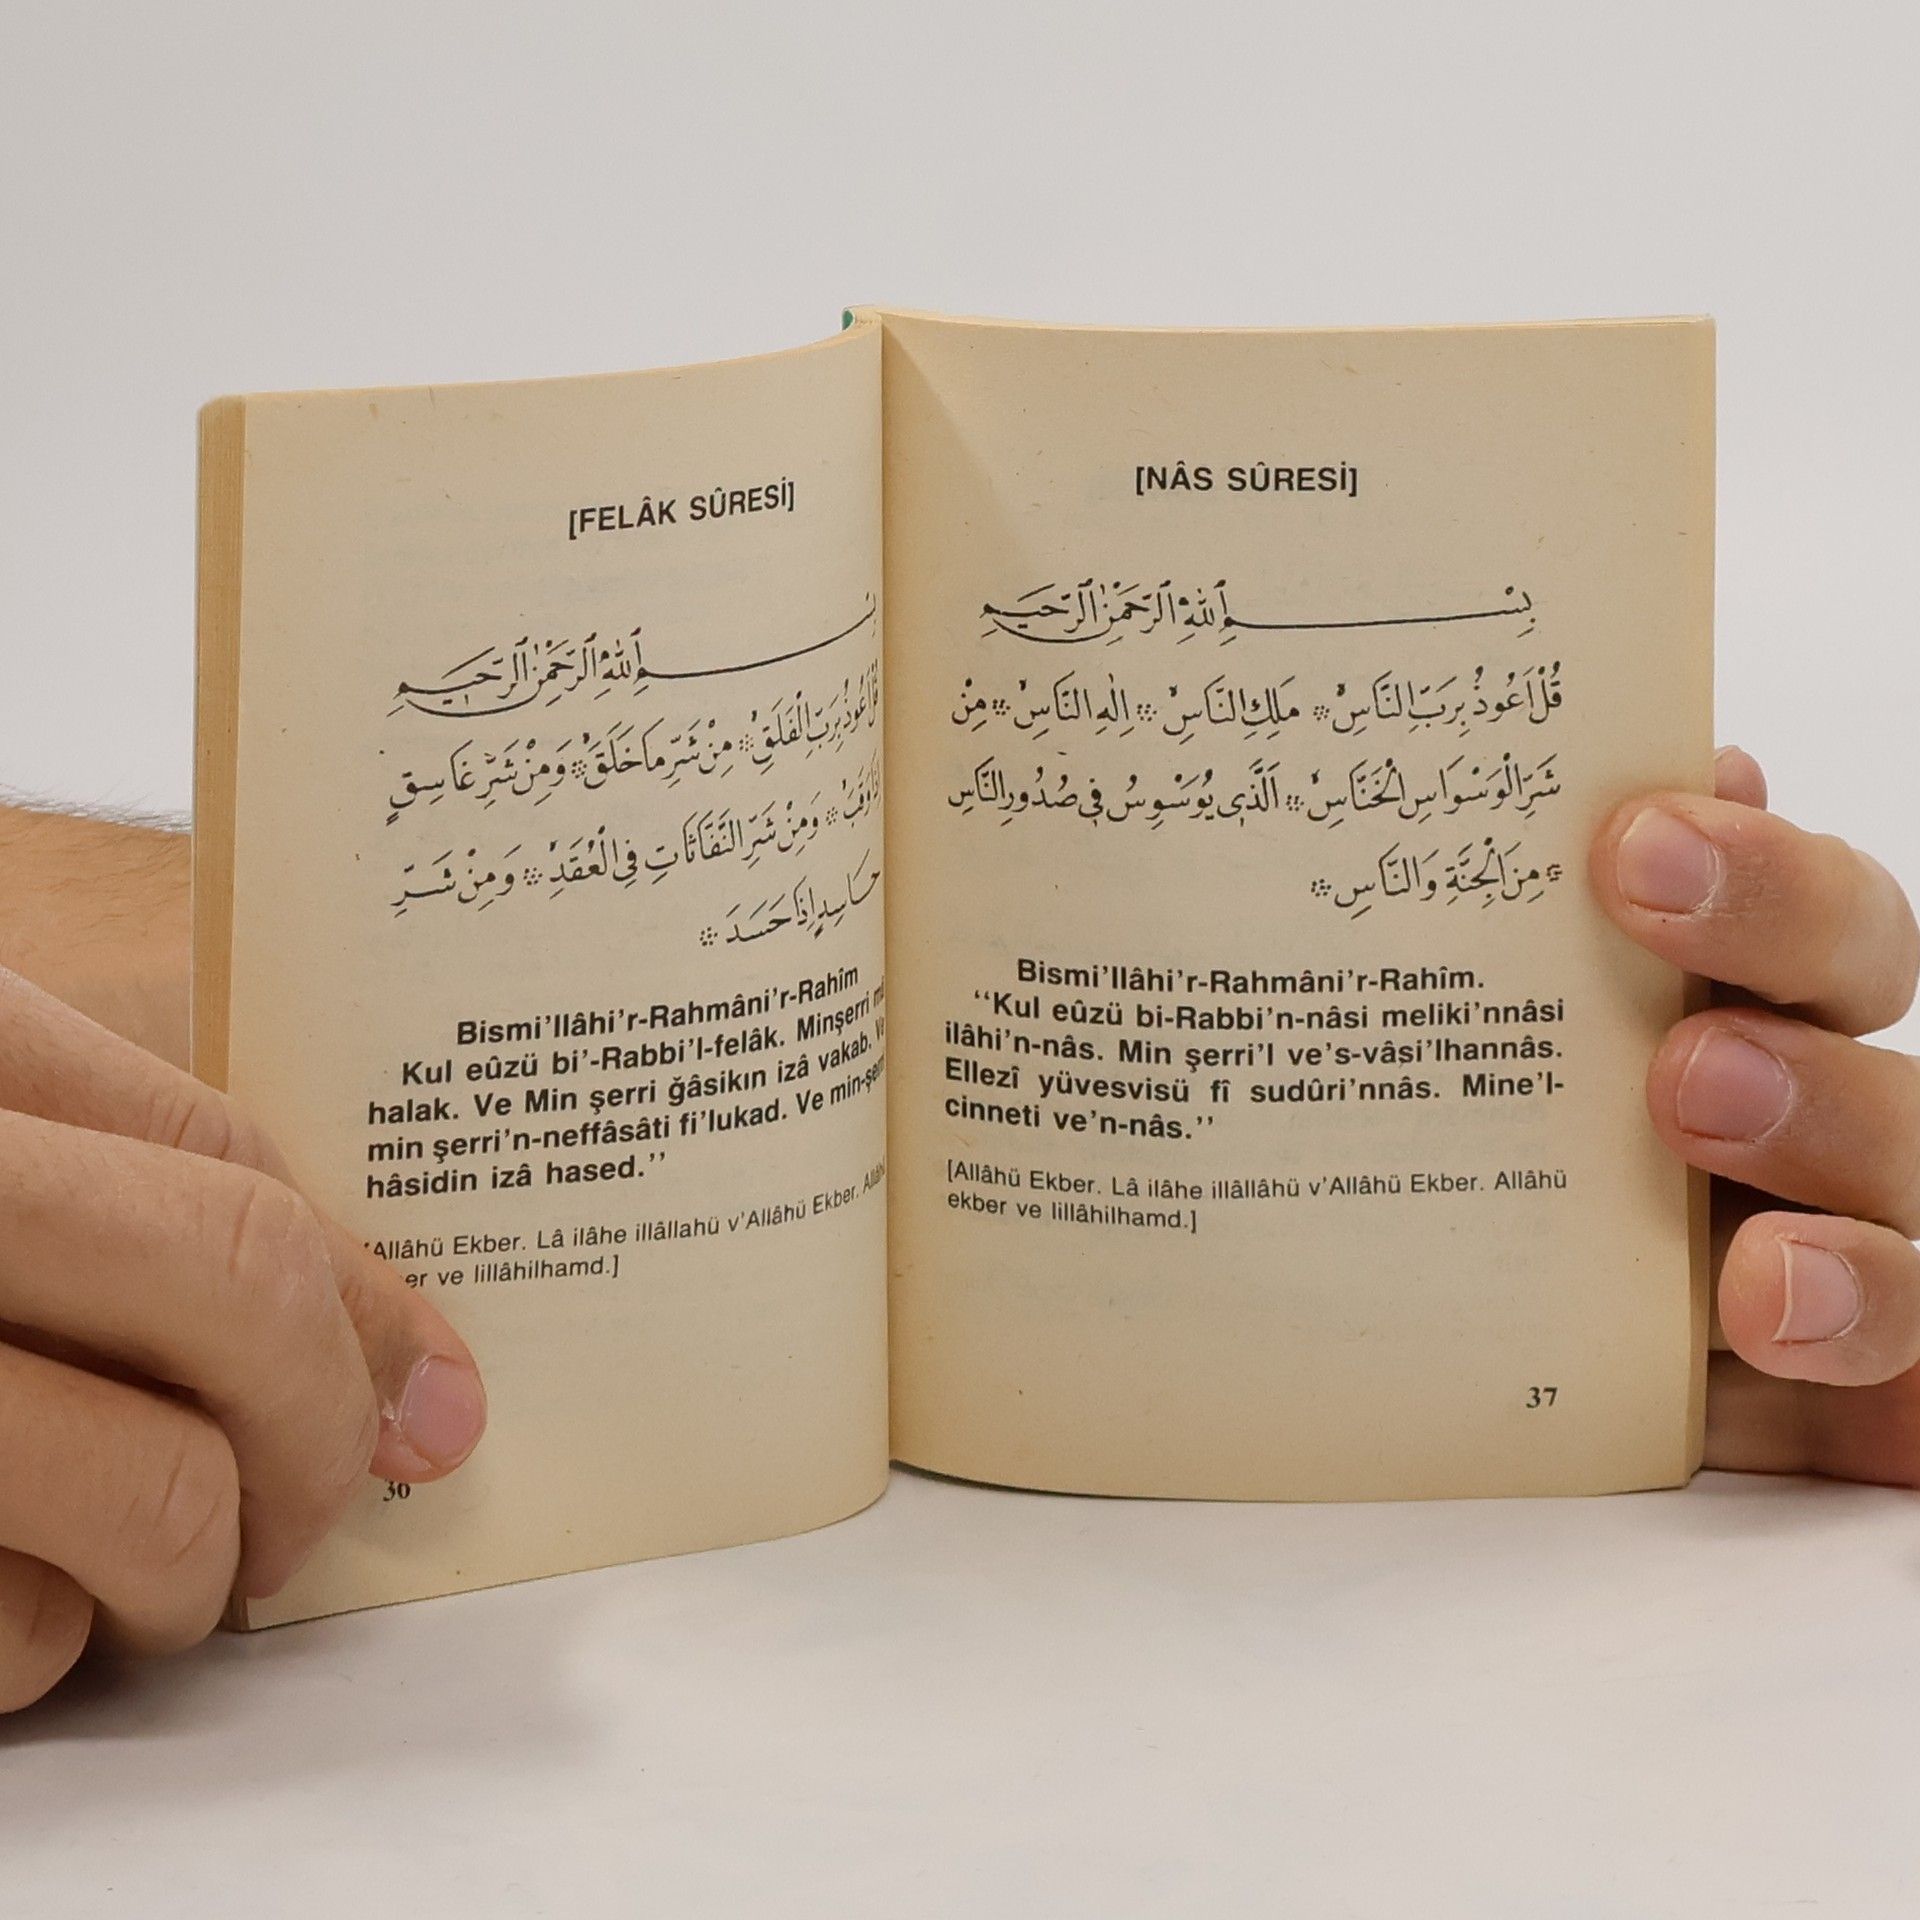 [FELÂK SÛRESİ]
بِسْـــــمِ ٱللّٰهِ ٱلرَّحْمٰنِ ٱلرَّحِيمِ
قُلْ اَعُوذُ بِرَبِّ الْفَلَقِ ۙ۞ مِنْ شَرِّ مَا خَلَقَ ۙ۞ وَمِنْ شَرِّ غَاسِقٍ
اِذَا وَقَبَ ۙ۞ وَمِنْ شَرِّ النَّفَّاثَاتِ فِي الْعُقَدِ ۙ۞ وَمِنْ شَـرِّ
حَاسِدٍ اِذَا حَسَدَ ۞
Bismi’llâhi’r-Rahmâni’r-Rahîm
Kul eûzü bi’-Rabbi’l-felâk. Minşerri
halak. Ve Min şerri ğâsikın izâ vakab.
min şerri’n-neffâsâti fi’lukad. Ve
hâsidin izâ hased.’’
Allâhü Ekber. Lâ ilâhe illâllahü v’Allâhü Ekber.
ve lillâhilhamd.]
36
[NÂS SÛRESİ]
بِسْـــــمِ ٱللّٰهِ ٱلرَّحْمٰنِ ٱلرَّحِيمِ
قُلْ اَعُوذُ بِرَبِّ النَّاسِ ۙ۞ مَلِكِ النَّاسِ ۙ۞ اِلٰهِ النَّاسِ ۙ۞ مِنْ
شَرِّ الْوَسْوَاسِ الْخَنَّاسِ ۙ۞ اَلَّذِي يُوَسْوِسُ فِي صُدُورِ النَّاسِ
۞ مِنَ الْجِنَّةِ وَالنَّاسِ ۞
Bismi’llâhi’r-Rahmâni’r-Rahîm.
‘‘Kul eûzü bi-Rabbi’n-nâsi meliki’nnâsi
ilâhi’n-nâs. Min şerri’l ve’s-vâsi’lhannâs.
Ellezî yüvesvisü fî sudûri’nnâs. Mine’l-
cinneti ve’n-nâs.’’
[Allâhü Ekber. Lâ ilâhe illâllâhü v’Allâhü Ekber. Allâhü
ekber ve lillâhilhamd.]
37